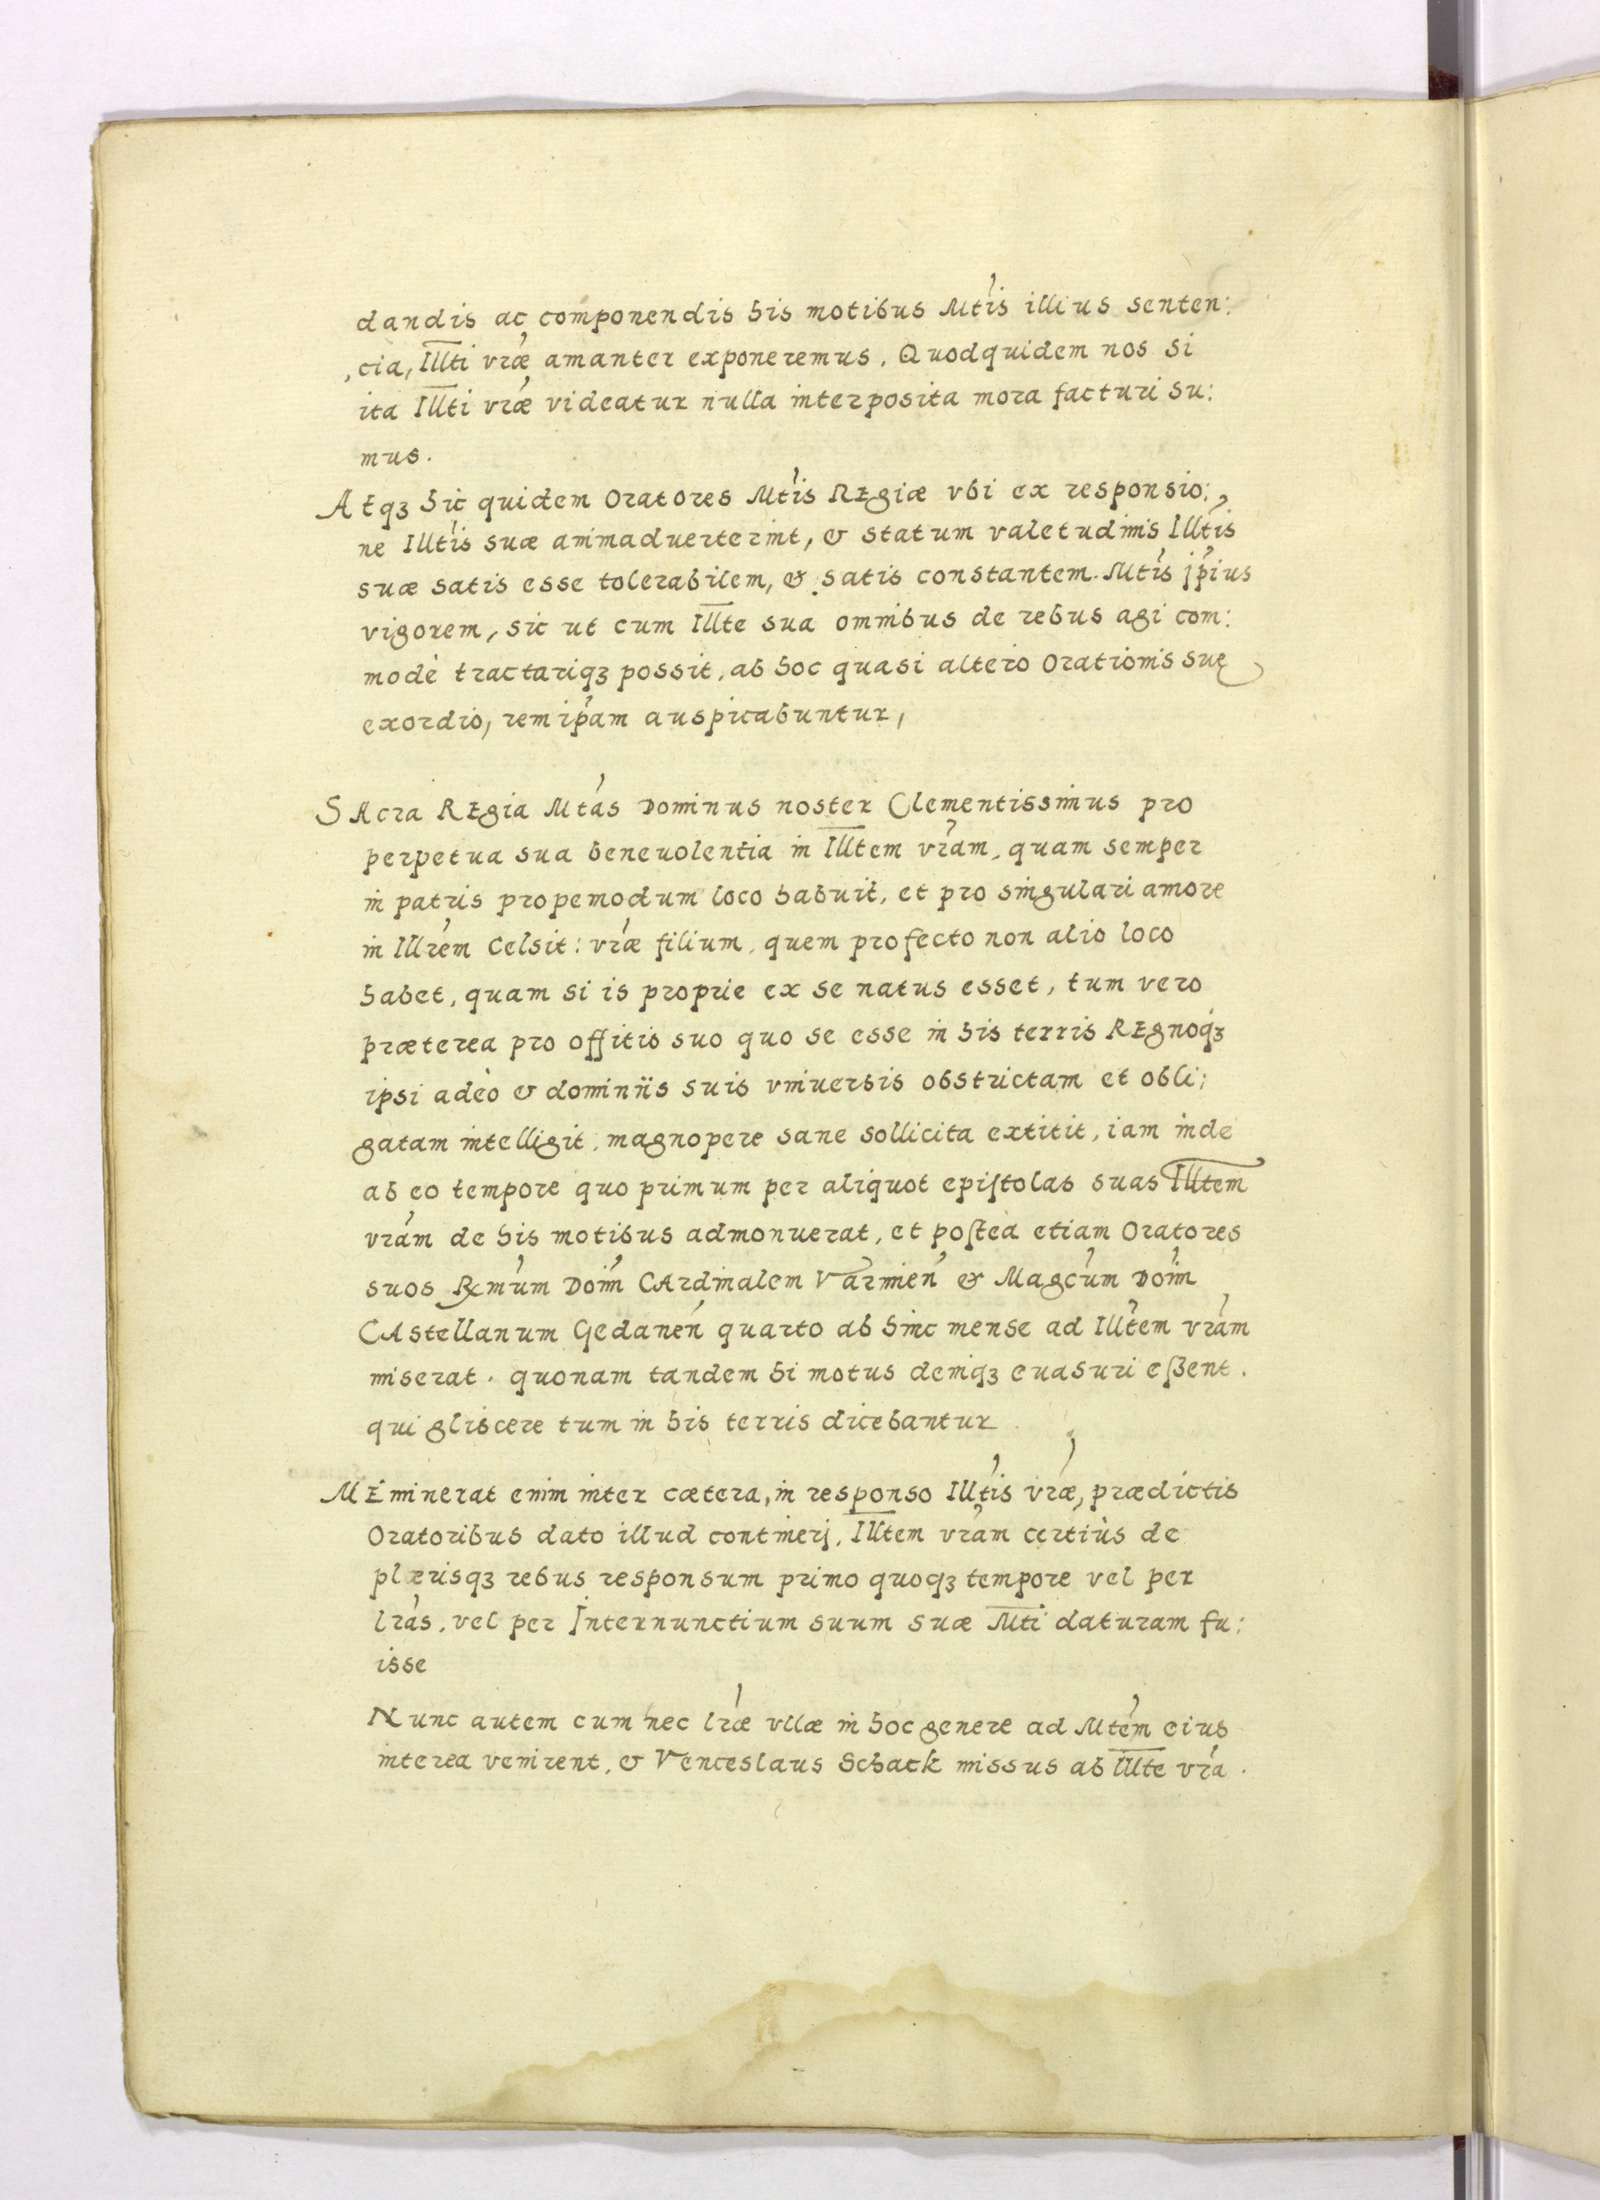 dandis ac componendis his motibus Mtis illius senten:
cia, Illti vræ amanter exponeremus. Quodquidem nos si
ita Illti vræ videatur nulla interposita mora facturi su:
mus.
Atqꝫ hic quidem Oratores Mtis REgiæ vbi ex responsio:
ne Illtis suæ animaduerterint, & statum valetudinis Illtis
suæ satis esse tolerabilem, & satis constantem Mtis jpius
vigorem, sic ut cum Illte sua omnibus de rebus agi com:
modè tractariqꝫ possit, ab hoc quasi altero Orationis suę
exordio, rem ipam auspicabuntur,
SAcra REgia Mtas Dominus noster Clementissimus pro
perpetua sua beneuolentia in Illtem vram, quam semper
in patris propemodum loco habuit, et pro singulari amore
in Illrem Celsit: vræ filium, quem profecto non alio loco
habet, quam si is proprie ex se natus esset, tum vero
præterea pro offitio suo quo se esse in his terris REgnoqꝫ
ipsi adeò & dominiis suis vniuersis obstrictam et obli:
gatam intelligit, magnopere sane sollicita extitit, iam inde
ab eo tempore quo primum per aliquot epistolas suas Illtem
vram de his motibus admonuerat, et postea etiam Oratores
suos Rxmum Doim CArdinalem Varmien & Magcum Doim
CAstellanum Gedanen quarto ab hinc mense ad Illtem vram
miserat. quonam tandem hi motus deniqꝫ euasuri eßent.
qui gliscere tum in his terris dicebantur
MEminerat enim inter cætera, in responso Illtis vræ, prædictis
Oratoribus dato illud contineri, Illtem vram certiùs de
plærisqꝫ rebus responsum primo quoqꝫ tempore vel per
lras, vel per Internunctium suum suæ Mti daturam fu:
isse
Nunc autem cum nec lræ vllæ in hoc genere ad Mtem eius
interea venirent, & Venceslaus Schack missus ab Illte vra.